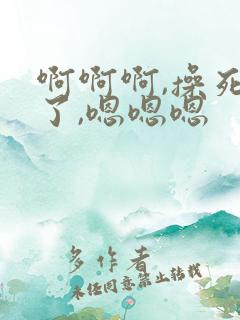 啊啊啊,操死
了,嗯嗯嗯
多作者
未经同意禁止转载